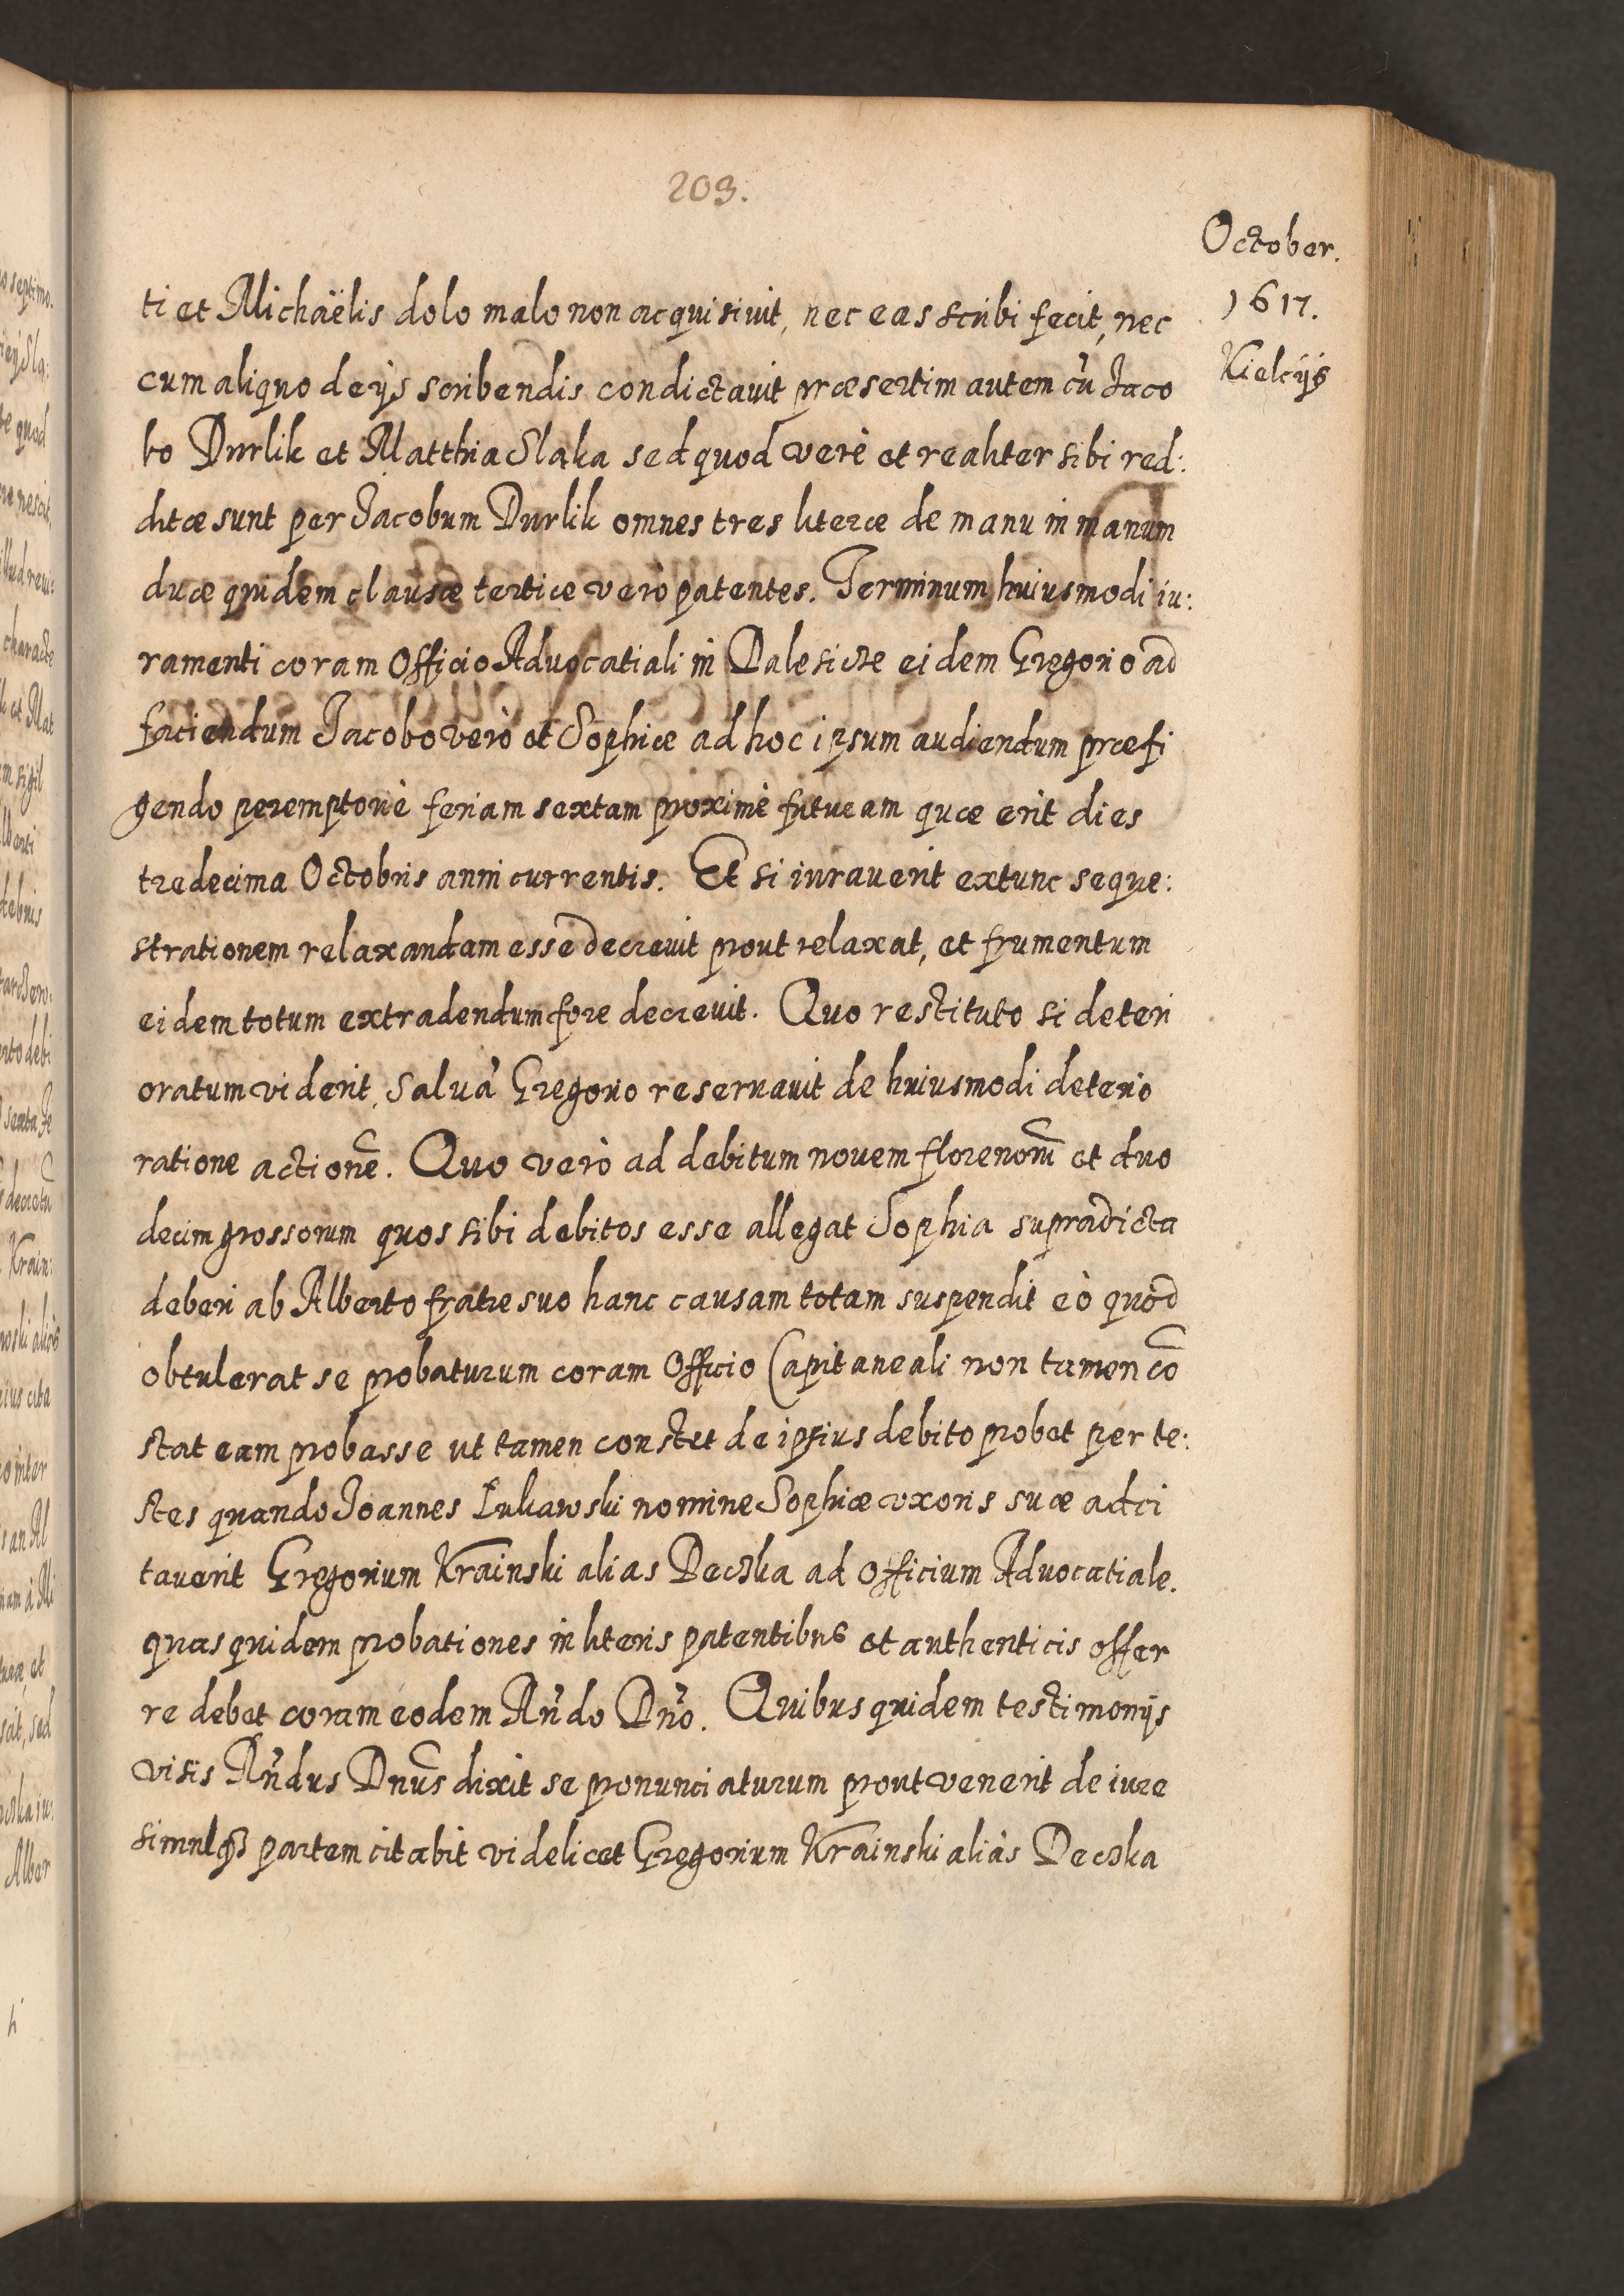 203.
October.
1617.
Kielcijs
ti et Michaëlis dolo malo non acquisiuit, nec eas scribi fecit, nec
cum aliquo de ijs scribendis condictauit præsertim autem cũ Jaco
bo Durlik et Matthia Slaka sed quod verè et realiter sibi red:
ditæ sunt per Jacobum Durlik omnes tres literæ de manu in manum
duæ quidem clausæ tertiæ verò patentes. Terminum huiusmodi iu:
ramenti coram Officio Aduocatiali in Dalesicze eidem Gregorio ad
faciendum Jacobo verò et Sophiæ ad hoc ipsum audiendum præfi
gendo peremptoriè feriam sextam proximè futuram quæ erit dies
tredecima Octobris anni currentis. Et si iurauerit extunc seque:
strationem relaxandam esse decreuit prout relaxat, et frumentum
eidem totum extradendum fore decreuit. Quo restituto si deteri
oratum viderit, saluã Gregorio reseruauit de huiusmodi deterio
ratione actionẽ. Quo verò ad debitum nouem florenorũ et duo
decim grossorum quos sibi debitos esse allegat Sophia supradicta
deberi ab Alberto fratre suo hanc causam totam suspendit eò quòd
obtulerat se probaturum coram Officio Capitaneali non tamen cõ
stat eam probasse ut tamen constet de ipsius debito probet per te:
stes quando Joannes Łukawski nomine Sophiæ vxoris suæ adci
tauerit Gregorium Krainski alias Deczka ad Officium Aduocatiale.
quas quidem probationes in literis patentibus et authenticis offer
re debet coram eodem Rñdo Dño. Quibus quidem testimonijs
visis Rñdus Dnũs dixit se pronunciaturum prout venerit de iure
simulqȝ partem citabit videlicet Gregorium Krainski aliàs Deczka